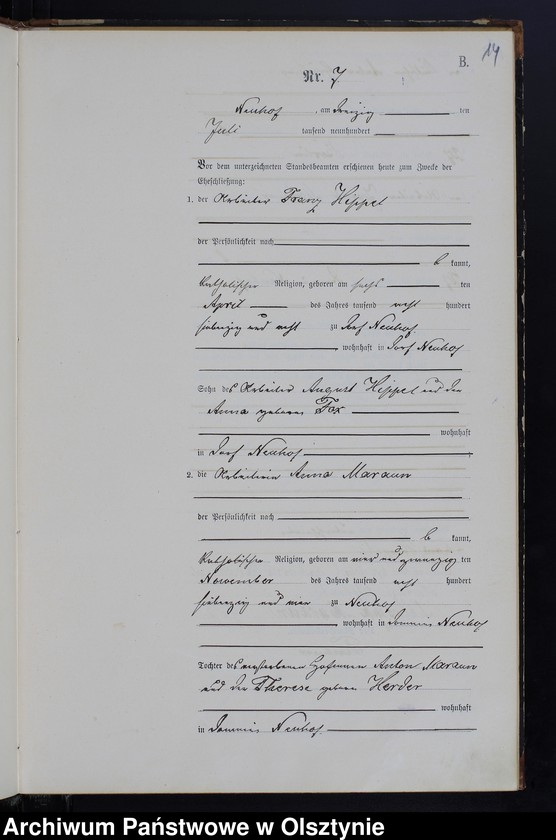 14
B.
Nr. 7
Neuhof, am dreizig ten
Juli tausend neunhundert
Vor dem unterzeichneten Standesbeamten erschienen heute zum Zwecke der
Eheschließung:
1. der Arbeiter Franz Hippel
der Persönlichkeit nach
b kannt,
katholischer Religion, geboren am sechs ten
April des Jahres tausend acht hundert
siebenzig und acht zu Dorf Neuhof
wohnhaft in Dorf Neuhof
Sohn des Arbeiter August Hippel und der
Anna geborene Fox
wohnhaft
in Dorf Neuhof
2. die Arbeiterin Anna Maraun
der Persönlichkeit nach
b kannt,
katholischer Religion, geboren am vier und zwanzig ten
November des Jahres tausend acht hundert
siebenzig und vier zu Neuhof
wohnhaft in Dominio Neuhof
Tochter des verstorbenen Anton Maraun
und der Therese geboren Herder
wohnhaft
in Dominio Neuhof
Archiwum Państwowe w Olsztynie